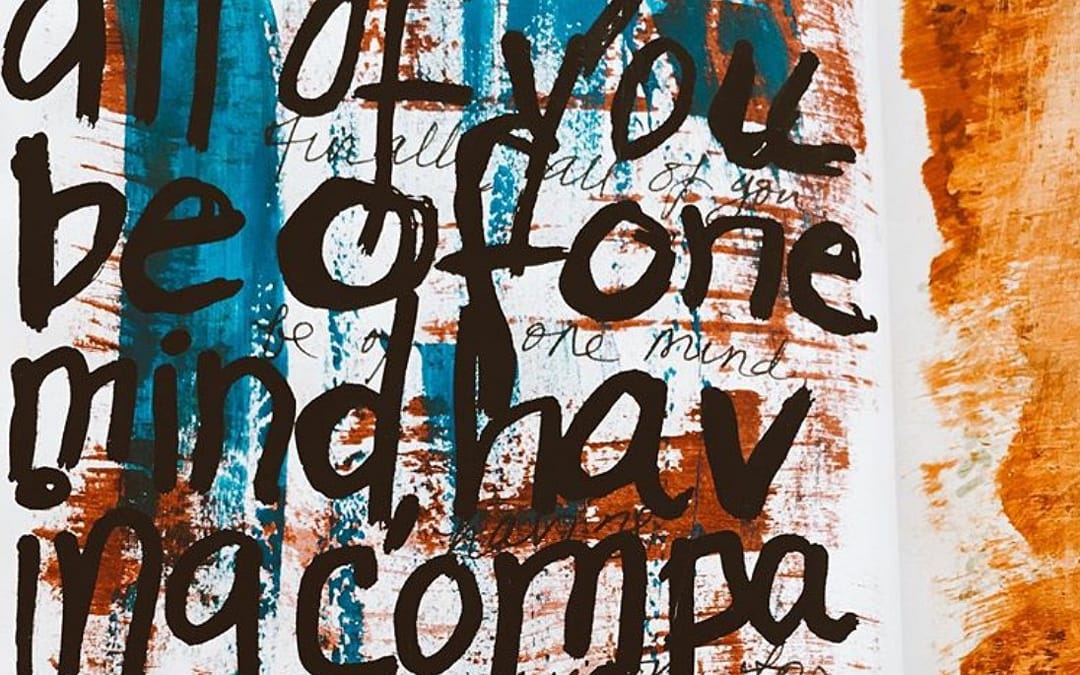 all of you
Finally all of you
be of one
be of one mind
mind, hav
having
ing compa
for